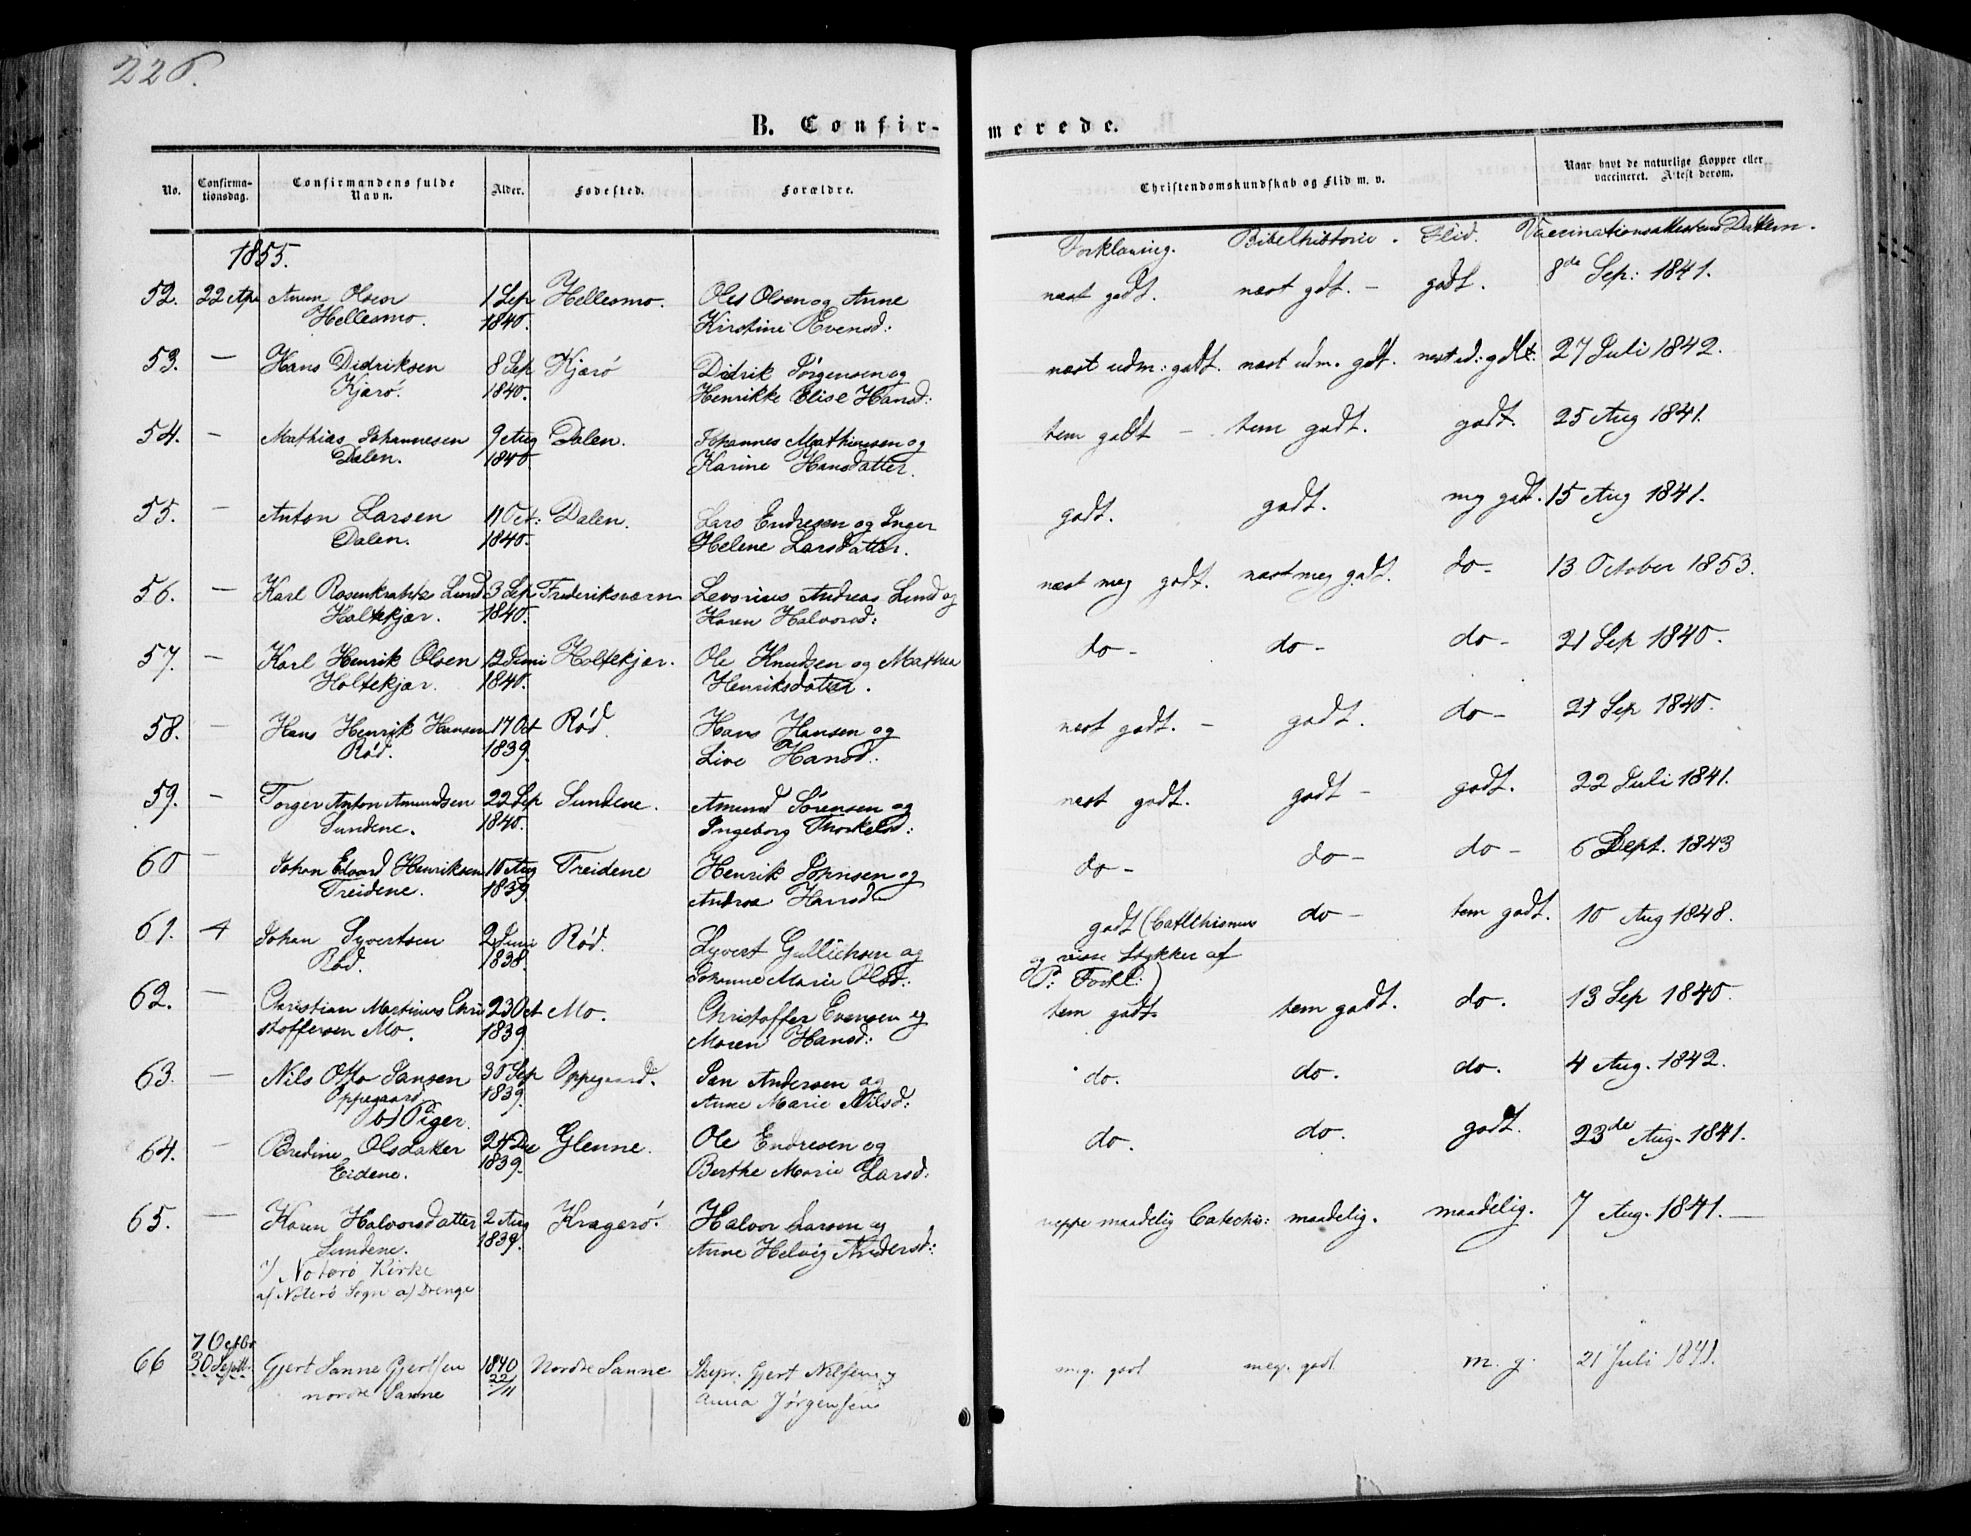 226.
B. Confir- merede.
No. Confirma-tionsdag. Confirmandens fulde Navn. Alder. Fødested. Forældre. Christendomskundskab og Flid m. v. Naar havt de naturlige Kopper eller vaccineret. Attest derom.
1855. Forklaring. Bibelhistorie. Flid.
52. 22 Apr Olsen 1 Sep Hellesmo. Ole Olsen og Anne næst godt. næst gdt. – godt. 8de Sep: 1841.
Hellesmo. 1840. Kirstine Evensd:
53. — Hans Didriksen 8 Sep Kjærö Didrik Jörgensen og næst udm: godt. næst udm. godt. næst ud: godt. 27 Juli 1842.
Kjærö. 1840. Henrikke Elise Hansd:
54. - Mathias Johannesen 9 Aug Dalen. Johannes Mathiesen og tem godt – tem godt. godt. 25 Aug 1841.
Dalen. 1840 Karine Hansdatter.
55. — Anton Larsen 11 Oct: Dalen. Lars Endresen og Inger godt. godt. meg godt. 15 Aug 1841.
Dalen. 1840. Helene Larsdatter.
56. — Karl Rosenkratz Lund 3 Sep Frederiksværn Andreas Lund og næst meg godt. næst meg godt. do- 13 October 1853.
Holtekjær. 1840. Karen Halvorsd:
57. — Karl Henrik Olsen 12 Juni Holtekjær. Ole Knudsen og Mathea do- do- do- 21 Sep 1840.
Holtekjær. 1840. Henriksdatter.
58. — Hans Henrik Hansen 17 Oct Röd. Hans Hansen og næst godt. – godt. do- 21 Sep 1840.
Röd. 1839. Live Hansd:
59. - Torger Anton Amundsen 22 Sep Sundene. Amund Sörensen og næst godt. godt – godt. 22 Juli 1841.
Sundene. 1840. Ingeborg Thorkelsd:
60 — Johan Edvard Henriksen 16 Aug Treidene Henrik og do- do- do- 6 Sept. 1843
Treidene. 1839 Andrea Hansd-
61. 4 Johan Syvertsen 2 Juni Röd. Syvert Gullichsen og godt (Catechismus do- tem godt. 10 Aug 1848.
Röd. 1838. Johanne Marie Olsd: og visse Stykker af
P: Forkl:)
62. — Christian Martinus Chri 23 Oct Mo. Christoffer Evensen og tem godt. tem godt. do. 13 Sep 1840.
stoffersen Mo. 1839 Maren Hansd:
63. — Nils Otto Jansen 30 Sep Oppegaard. Jan Andersen og do. do. do. 4 Aug. 1842.
Oppegaard. 1839. Anne Marie Nilsd:
b) Piger.
64. — Bredine Olsdatter 24 Dec Glenne. Ole Endresen og do. do. godt. 23de Aug. 1841.
Eidene. 1839. Berthe Marie Larsd:
65. — Karen Halvorsdatter 2 Aug Kragerö. Halvor Larsen og neppe maadelig Catechis: maadelig. maadelig. 7 Aug. 1841.—
Sundene. 1839. Anne Helvig Andersd:
1) Noterö Kirke
a/ Noterö Sogn a) Drenge
7 Octbr
66 30 Septb. Gjert Sanne Gjertsen 1840 Nordre Sanne Skipr. Gjert Nilsen og meg. godt meg. godt m. g. 21 Juli 1841.
nordre Sanne 22/11 Anna Jörgensen